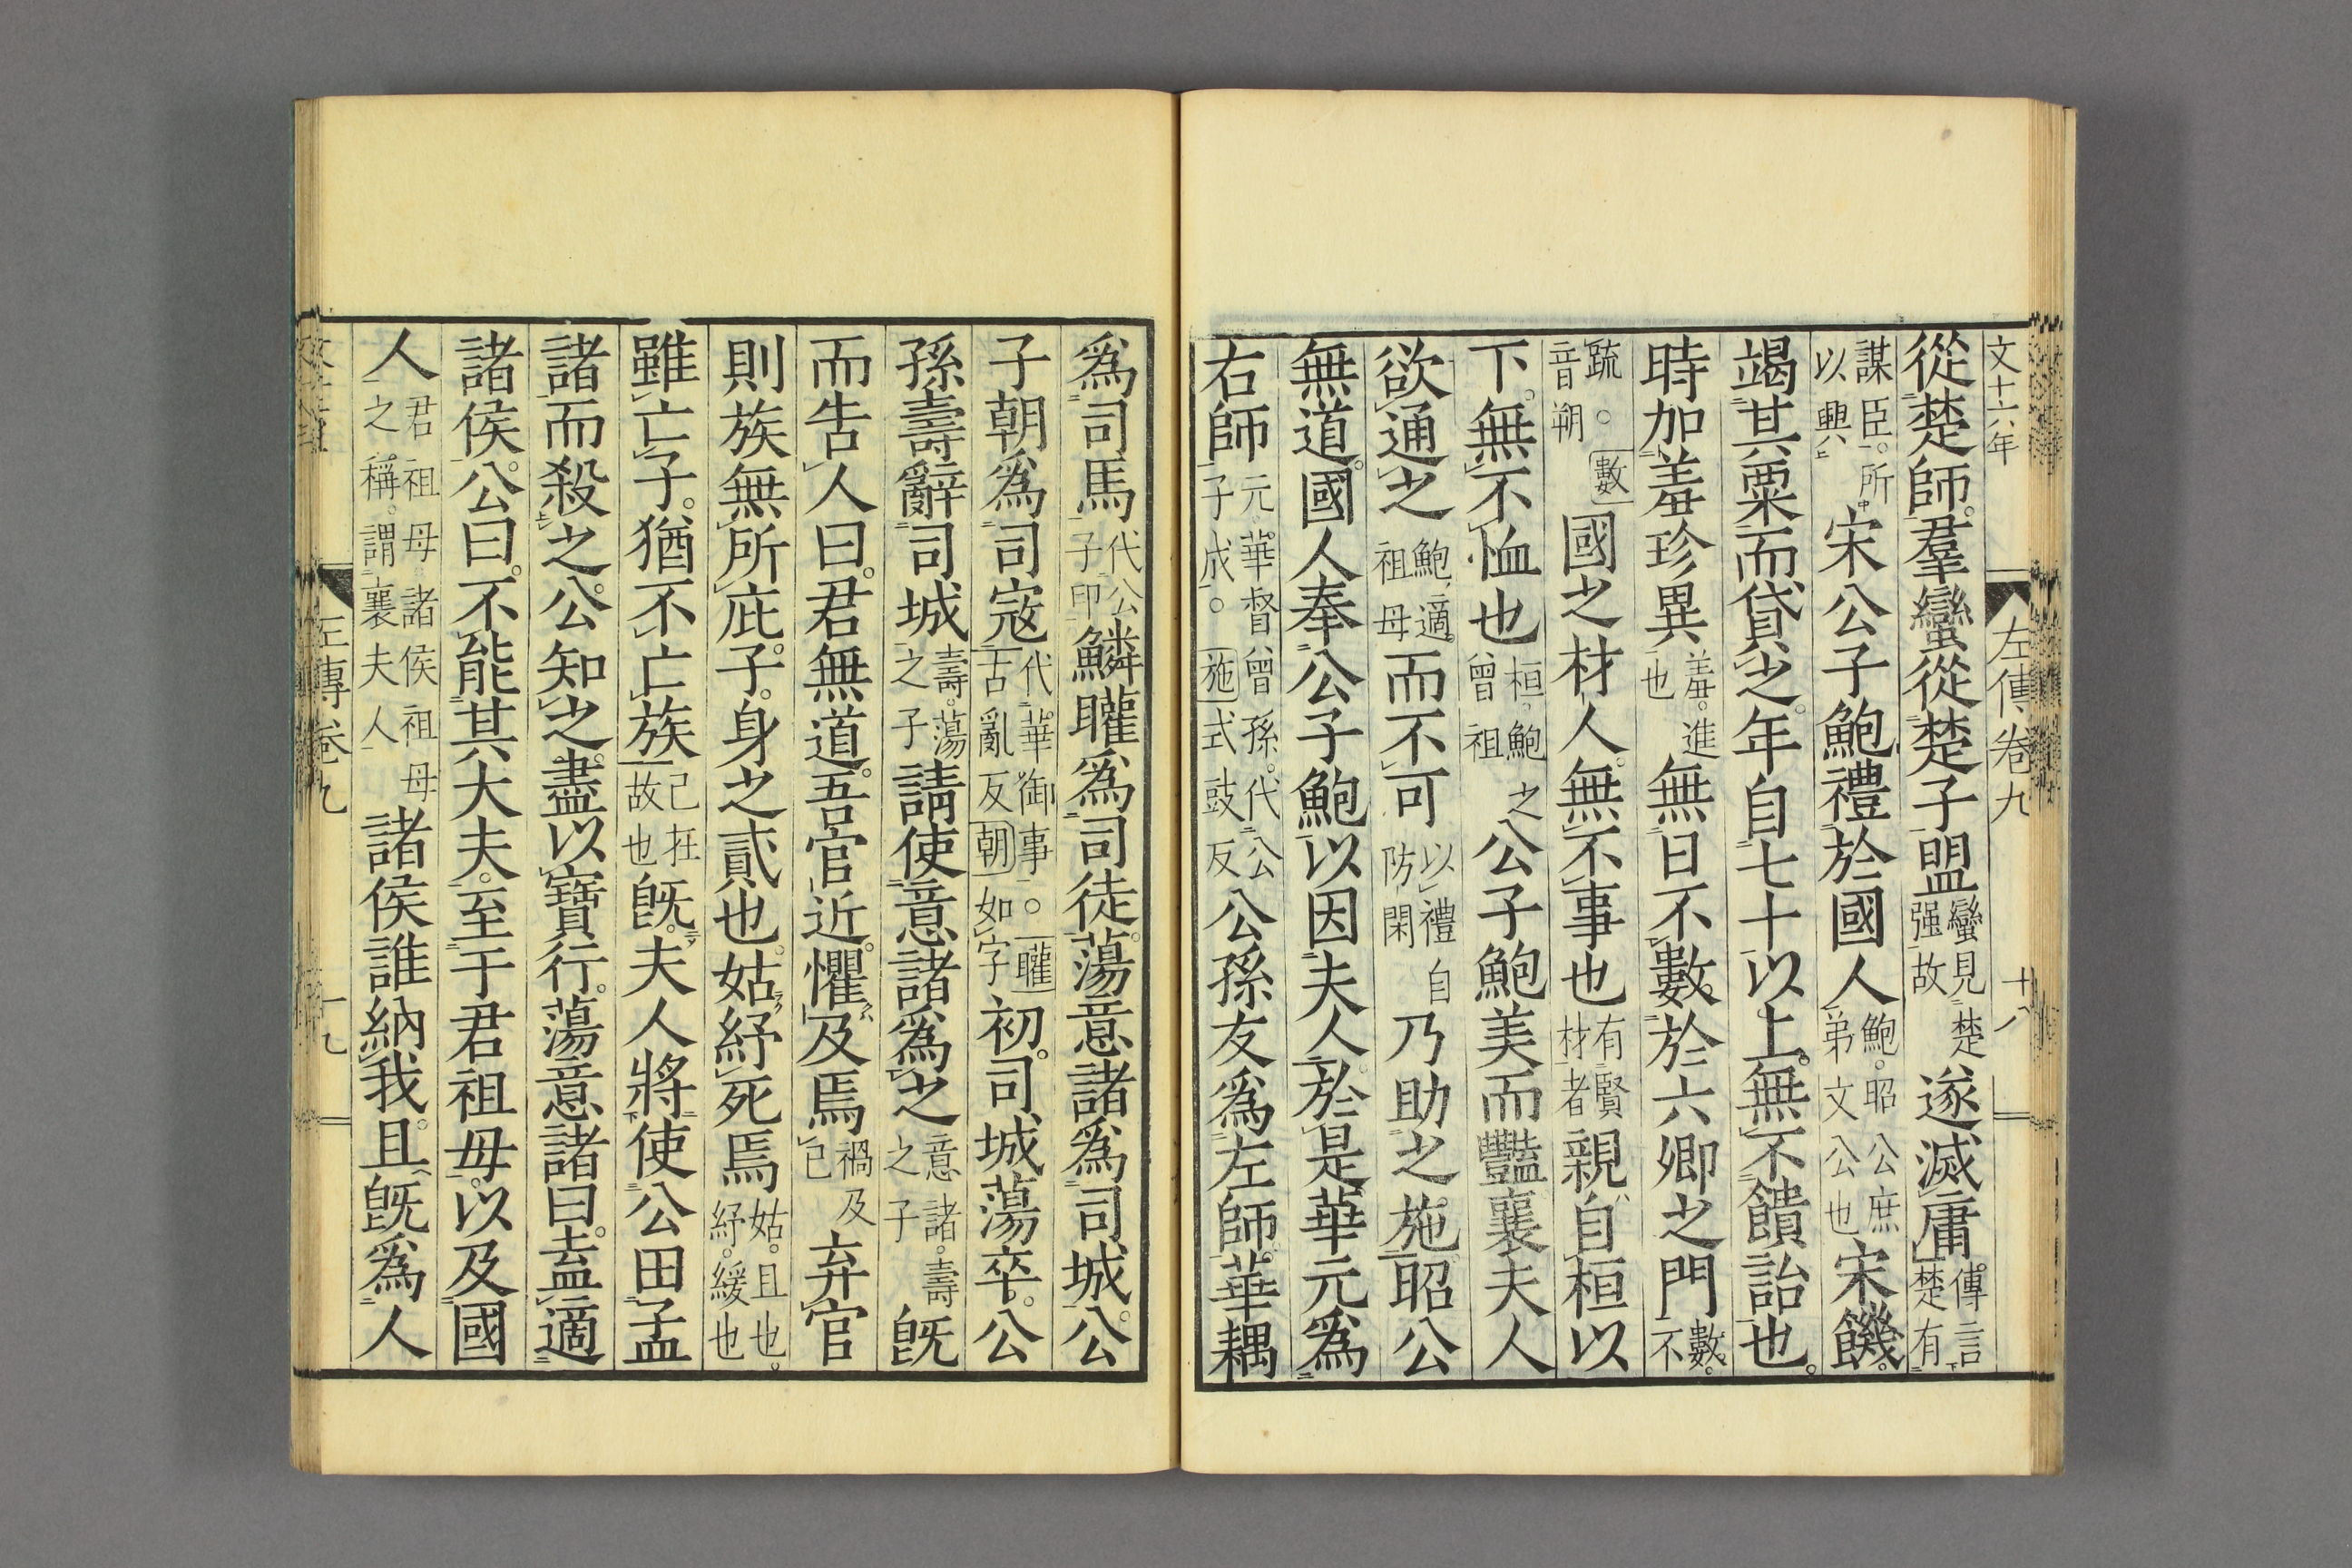 文十六年 左傳卷九 十八
從楚師。羣蠻從楚子盟蠻見楚强故遂滅庸傳言楚有
謀臣。所以興宋公子鮑禮於國人鮑。昭公庶弟文公也宋饑。
竭其粟而貸之。年自七十以上。無不饋詒也。
時加羞珍異羞。進也無日不數。於六卿之門數。不
疏。○數音朔國之材人。無不事也有賢材者親自桓以
下。無不恤也桓。鮑之曾祖公子鮑美而豔襄夫人
欲通之鮑。適祖母而不可以禮自防閑乃助之施。昭公
無道。國人奉公子鮑以因夫人。於是華元爲
右師元。華督曾孫。代公子成。○施式豉反公孫友爲左師。華耦
爲司馬代公子卬鱗矔爲司徒。蕩意諸爲司城。公
子朝爲司寇代華御事。○矔古亂反朝如字初。司城蕩卒。公
孫壽辭司城壽。蕩之子請使意諸爲之意諸。壽之子既
而告人曰。君無道。吾官近。懼及焉禍及己弃官
則族無所庇。子。身之貳也。姑紓死焉姑。且也。紓。緩也
雖亡子。猶不亡族己在故也既。夫人將使公田孟
諸而殺之。公知之。盡以寶行。蕩意諸曰。盍適
諸侯。公曰。不能其大夫。至于君祖母。以及國
人君祖母諸侯祖母之稱。謂襄夫人諸侯誰納我。且既爲人
左傳卷九